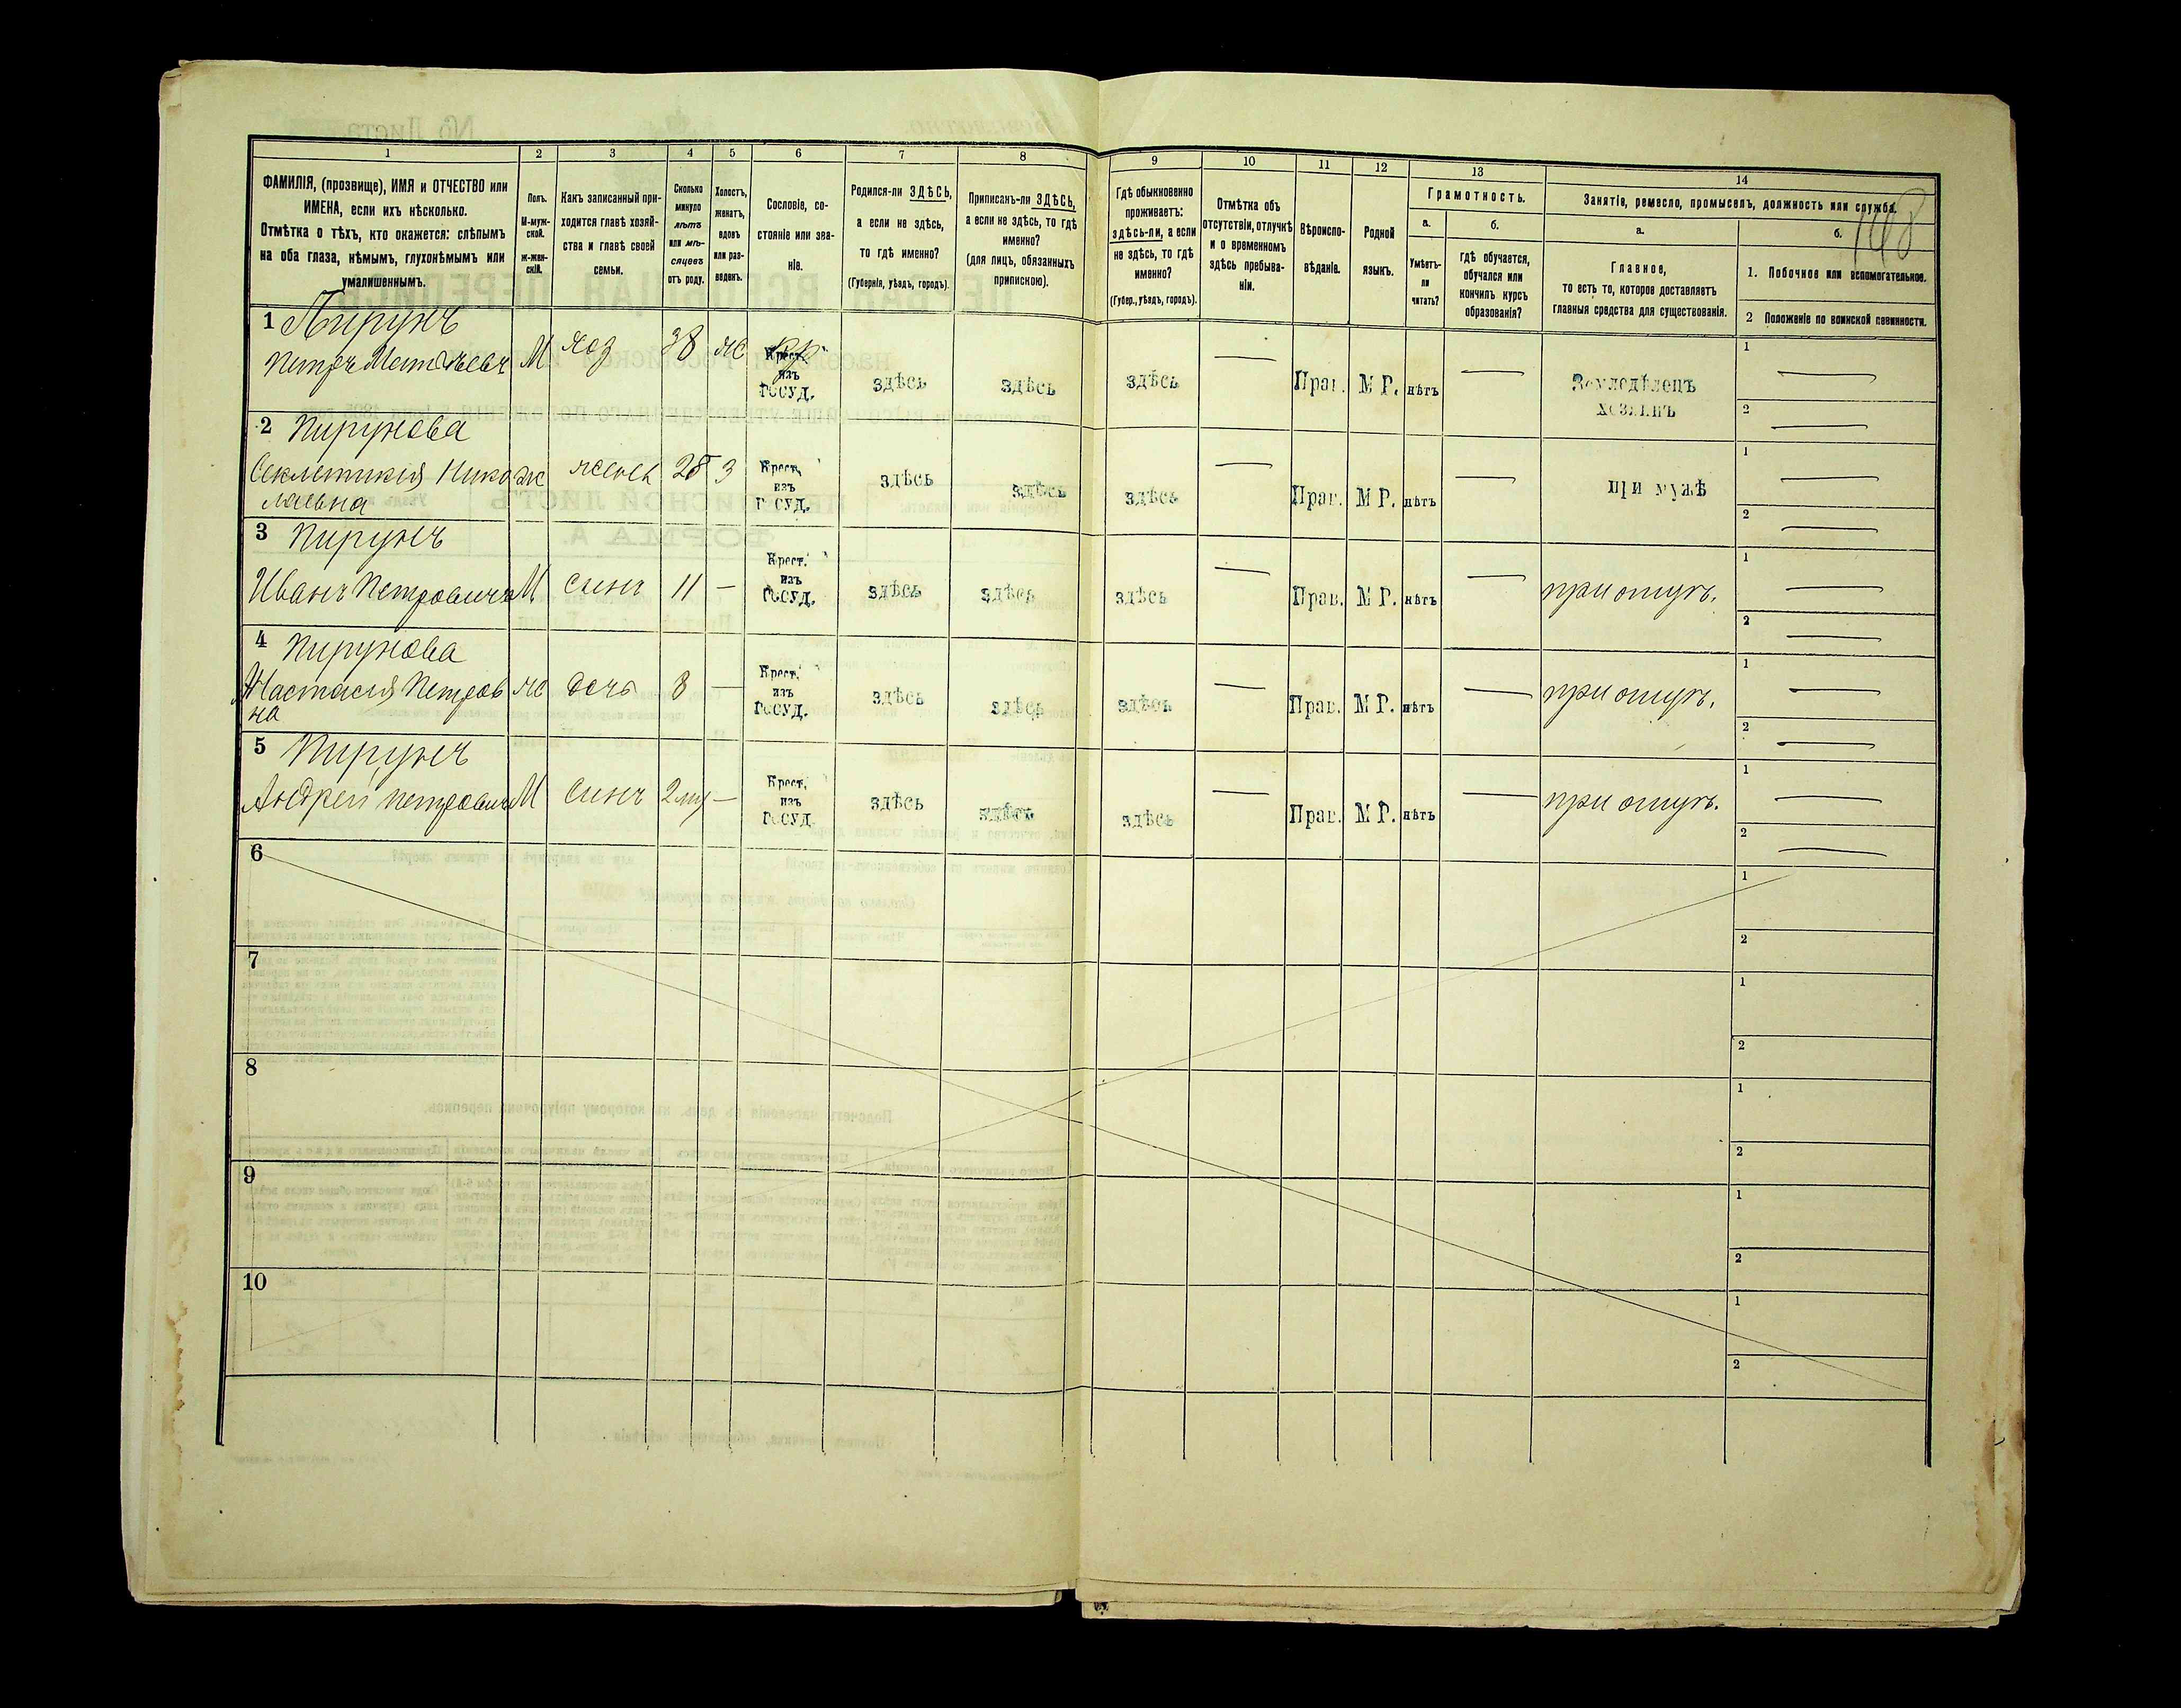 148
1 2 3 4 5 6 7 8 9 10 11 12 13 14
ФАМИЛІЯ, (прозвище), ИМЯ и ОТЧЕСТВО или
ИМЕНА, если ихъ нѣсколько.
Отмѣтка о тѣхъ, кто окажется: слѣпымъ
на оба глаза, нѣмымъ, глухонѣмымъ или
умалишеннымъ.
Полъ.
М-муж-
ской.
ж-жен-
скій.
Какъ записанный при-
ходится главѣ хозяй-
ства и главѣ своей
семьи.
Сколько
минуло
лѣтъ
или мѣ-
сяцевъ
отъ роду.
Холостъ,
женатъ,
вдовъ
или раз-
веденъ.
Сословіе, со-
стояніе или зва-
ніе.
Родился-ли ЗДѢСЬ,
а если не здѣсь,
то гдѣ именно?
(Губернія, уѣздъ, городъ).
Приписанъ-ли ЗДѢСЬ,
а если не здѣсь, то гдѣ
именно?
(для лицъ, обязанныхъ
припискою).
Гдѣ обыкновенно
проживаетъ:
здѣсь-ли, а если
не здѣсь, то гдѣ
именно?
(Губер., уѣздъ, городъ).
Отмѣтка объ
отсутствіи, отлучкѣ
и о временномъ
здѣсь пребыва-
ніи.
Вѣроиспо-
вѣданіе.
Родной
языкъ.
Грамотность.
а.
Умѣетъ-
ли
читать?
б.
Гдѣ обучается,
обучался или
кончилъ курсъ
образованія?
Занятіе, ремесло, промыселъ, должность или служба.
а.
Главное,
то есть то, которое доставляетъ
главныя средства для существованія.
б.
1. Побочное или вспомогательное.
2 Положеніе по воинской повинности.
1 Пирунъ
Петръ М 38 Крест. изъ ГОСУД. здѣсь здѣсь здѣсь — Прав. М Р. нѣтъ — Земледѣлецъ хозяинъ 1 — 2 —
2 Пирунова
Секлетикія Нико
лаевна ж жена 28 з Крест. изъ ГОСУД. здѣсь здѣсь здѣсь — Прав. М Р. нѣтъ — при мужѣ 1 — 2 —
3 Пирунъ
Иванъ Петровичъ М сынъ 11 — Крест. изъ ГОСУД. здѣсь здѣсь здѣсь — Прав. М Р. нѣтъ — при отцѣ. 1 — 2 —
4 Пирунова
Настасія Петров
на ж дочь 8 — Крест. изъ ГОСУД. здѣсь здѣсь здѣсь — Прав. М Р. нѣтъ — при отцѣ. 1 — 2 —
5 Пирунъ
Андрей Петровичъ М сынъ — Крест. изъ ГОСУД. здѣсь здѣсь здѣсь — Прав. М Р. нѣтъ — при отцѣ. 1 — 2 —
6 1 2
7 1 2
8 1 2
9 1 2
10 1 2